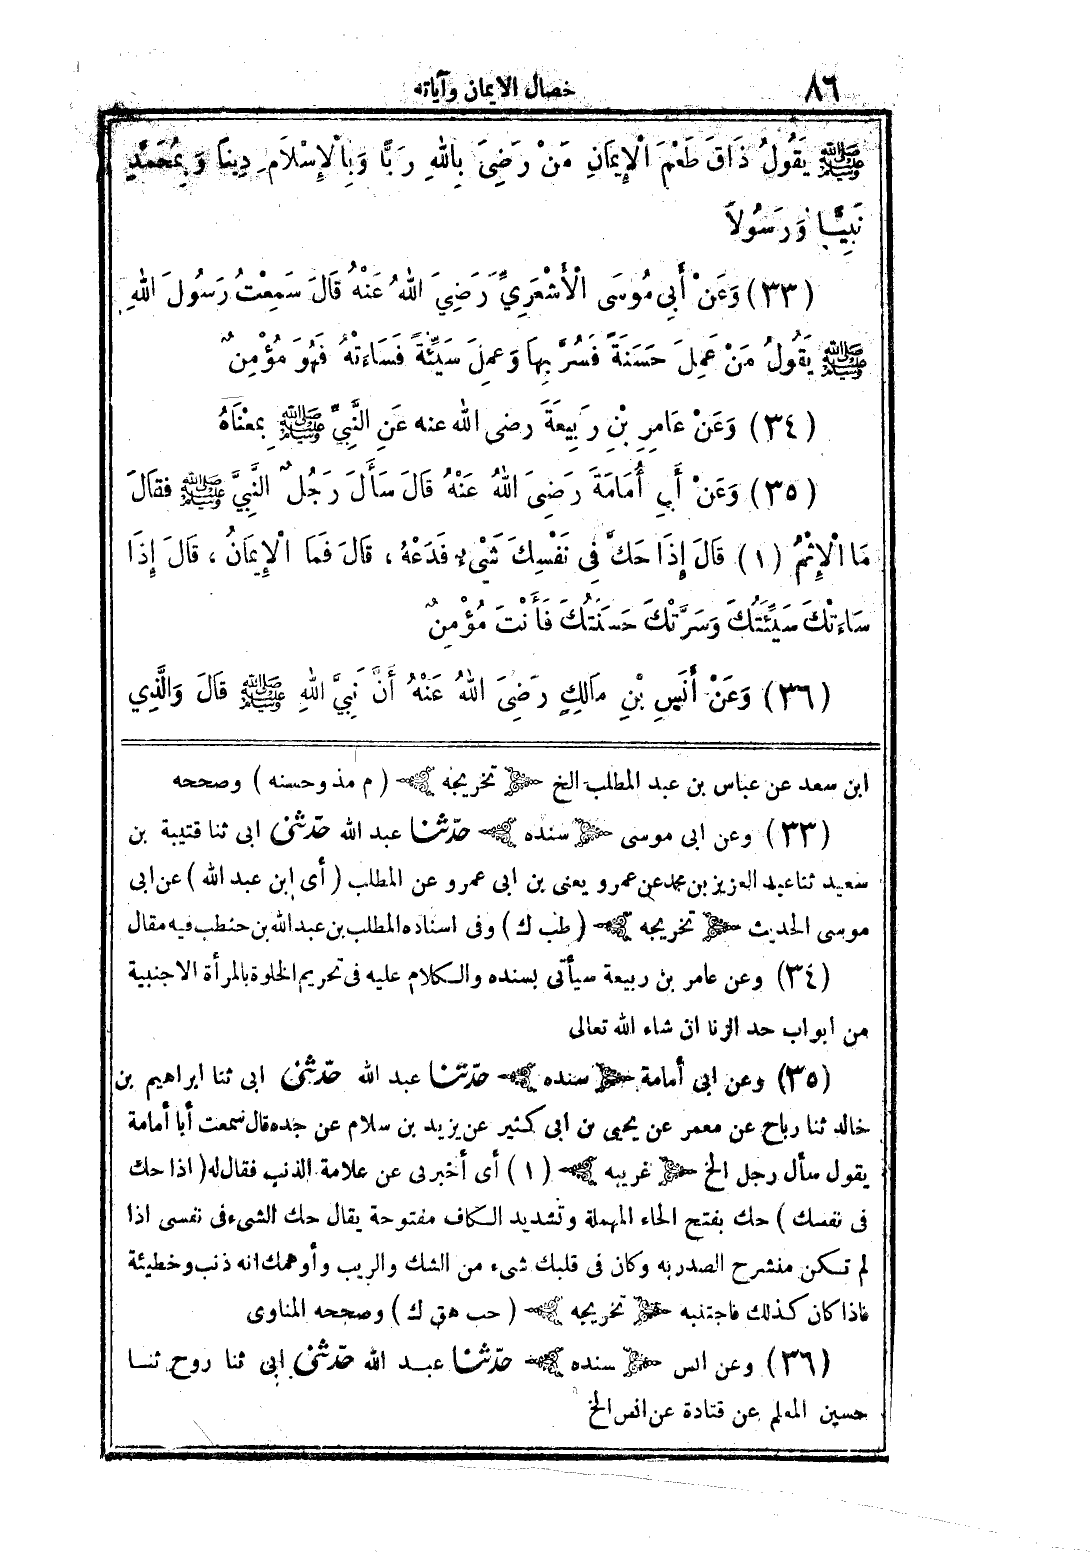 ٨٦ خصال الايمان وآياته
ﷺ يَقُولُ ذَاقَ طَعْمَ الْإِيمَانِ مَنْ رَضِىَ بِاللهِ رَبًّا وَبِالْإِسْلَامِ دِينًا وَبِمُحَمَّدٍ
نَبِيًّا وَرَسُولاً
(٣٣) وَعَنْ أَبِي مُوسَى الْأَشْعَرِيِّ رَضِيَ اللهُ عَنْهُ قَالَ سَمِعْتُ رَسُولَ اللهِ
ﷺ يَقُولُ مَنْ عَمِلَ حَسَنَةً فَسُرَّ بِهَا وَعَمِلَ سَيِّئَةً فَسَاءَتْهُ فَهُوَ مُؤْمِنٌ
(٣٤) وَعَنْ عَامِرِ بْنِ رَبِيعَةَ رضى الله عنه عَنِ النَّبِيِّ ﷺ بِمَعْنَاهُ
(٣٥) وَعَنْ أَبِي أُمَامَةَ رَضِىَ اللهُ عَنْهُ قَالَ سَأَلَ رَجُلٌ النَّبِيَّ ﷺ فَقَالَ
مَا الْإِثْمُ (١) قَالَ إِذَا حَكَّ فِى نَفْسِكَ شَىْءٌ فَدَعْهُ ، قَالَ فَمَا الْإِيمَانُ ، قَالَ إِذَا
سَاءَتْكَ سَيِّئَتُكَ وَسَرَّتْكَ حَسَنَتُكَ فَأَنْتَ مُؤْمِنٌ
(٣٦) وَعَنْ أَنَسِ بْنِ مَالِكٍ رَضِىَ اللهُ عَنْهُ أَنَّ نَبِيَّ اللهِ ﷺ قَالَ وَالَّذِي
ابن سعد عن عباس بن عبد المطلب الخ ﴿ تخريجه ﴾ ( م مذ وحسنه ) وصححه
(٣٣) وعن ابى موسى ﴿ سنده ﴾ حدّثنا عبد الله حدّثنى ابى ثنا قتيبة بن
سعيد ثنا عبد العزيز بن محمد عن عمرو يعنى بن ابى عمرو عن المطلب ( أى ابن عبد الله ) عن ابى
موسى الحديث ﴿ تخريجه ﴾ ( طب ك ) وفى اسناده المطلب بن عبد الله بن حنطب فيه مقال
(٣٤) وعن عامر بن ربيعة سيأتى بسنده والكلام عليه فى تحريم الخلوة بالمرأة الاجنبية
من ابواب حد الزنا ان شاء الله تعالى
(٣٥) وعن ابى أمامة ﴿ سنده ﴾ حدّثنا عبد الله حدّثنى ابى ثنا ابراهيم بن
خالد ثنا رباح عن معمر عن يحيى بن ابى كثير عن يزيد بن سلام عن جده قال سمعت أبا أمامة
يقول سأل رجل الخ ﴿ غريبه ﴾ (١) أى أخبرنى عن علامة الذنب فقال له ( اذا حك
فى نفسك ) حك بفتح الحاء المهملة وتشديد الكاف مفتوحة يقال حك الشىء فى نفسى اذا
لم تكن منشرح الصدر به وكان فى قلبك شىء من الشك والريب وأوهمك انه ذنب وخطيئة
فاذا كان كذلك فاجتنبه ﴿ تخريجه ﴾ ( حب هق ك ) وصححه المناوى
(٣٦) وعن انس ﴿ سنده ﴾ حدّثنا عبد الله حدّثنى ابى ثنا روح ثنا
حسين المعلم عن قتادة عن انس الخ